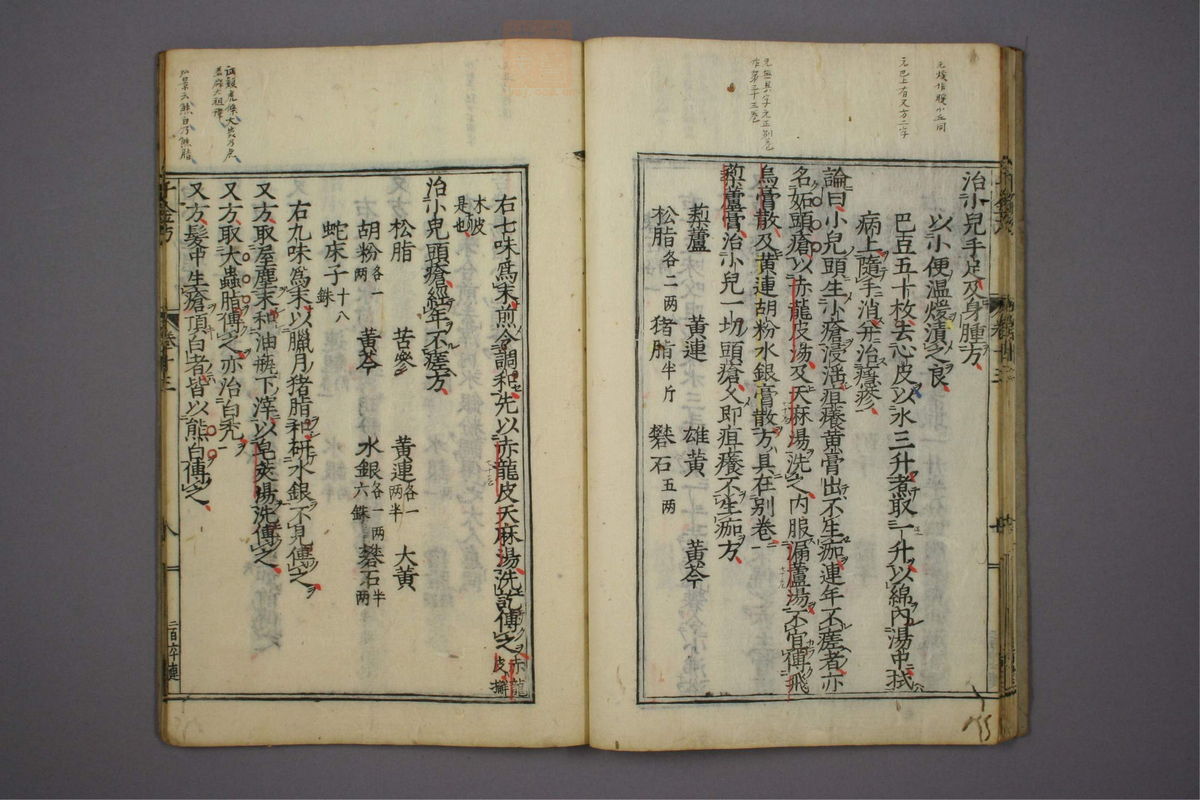 治小兒手足及身腫方
以小便温煖漬之良
巴豆五十枚去心皮以水三升煮取一升以綿内湯中拭
病上隨手消并治癮疹
論曰小兒頭生小瘡浸淫疽癢黄膏出不生痂連年不瘥者亦
名妬頭瘡以赤龍皮湯及天麻湯洗之内服漏蘆湯不宜傅飛
烏膏散及黄連胡粉水銀膏散方具在别卷
藜蘆膏治小兒一切頭瘡久即疽癢不生痂方
藜蘆 黄連 雄黄 黄芩
松脂各二两 猪脂半斤 礬石五两
右七味爲末煎令調和先以赤龍皮天麻湯洗訖傅之赤龍皮槲
木皮是也
治小兒頭瘡經年不瘥方
松脂 苦參 黄連各一两半 大黄
胡粉各一两 黄芩 水銀各一两六銖 礬石半两
蛇床子十八銖
右九味爲末以臘月猪脂和研水銀不見傅之
又方取屋塵末和油瓶下滓以皂莢湯洗傅之
又方取大蟲脂傅之亦治白禿
又方髮中生瘡頂白者皆以熊白傅之